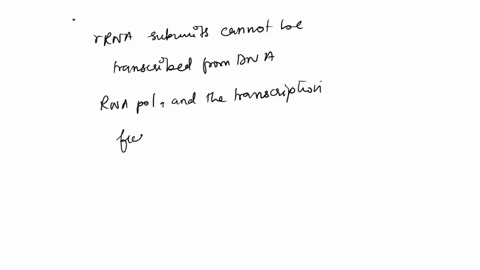 rRNA subunits cannot be
transcribed from DNA
RNA pol, and the transcription